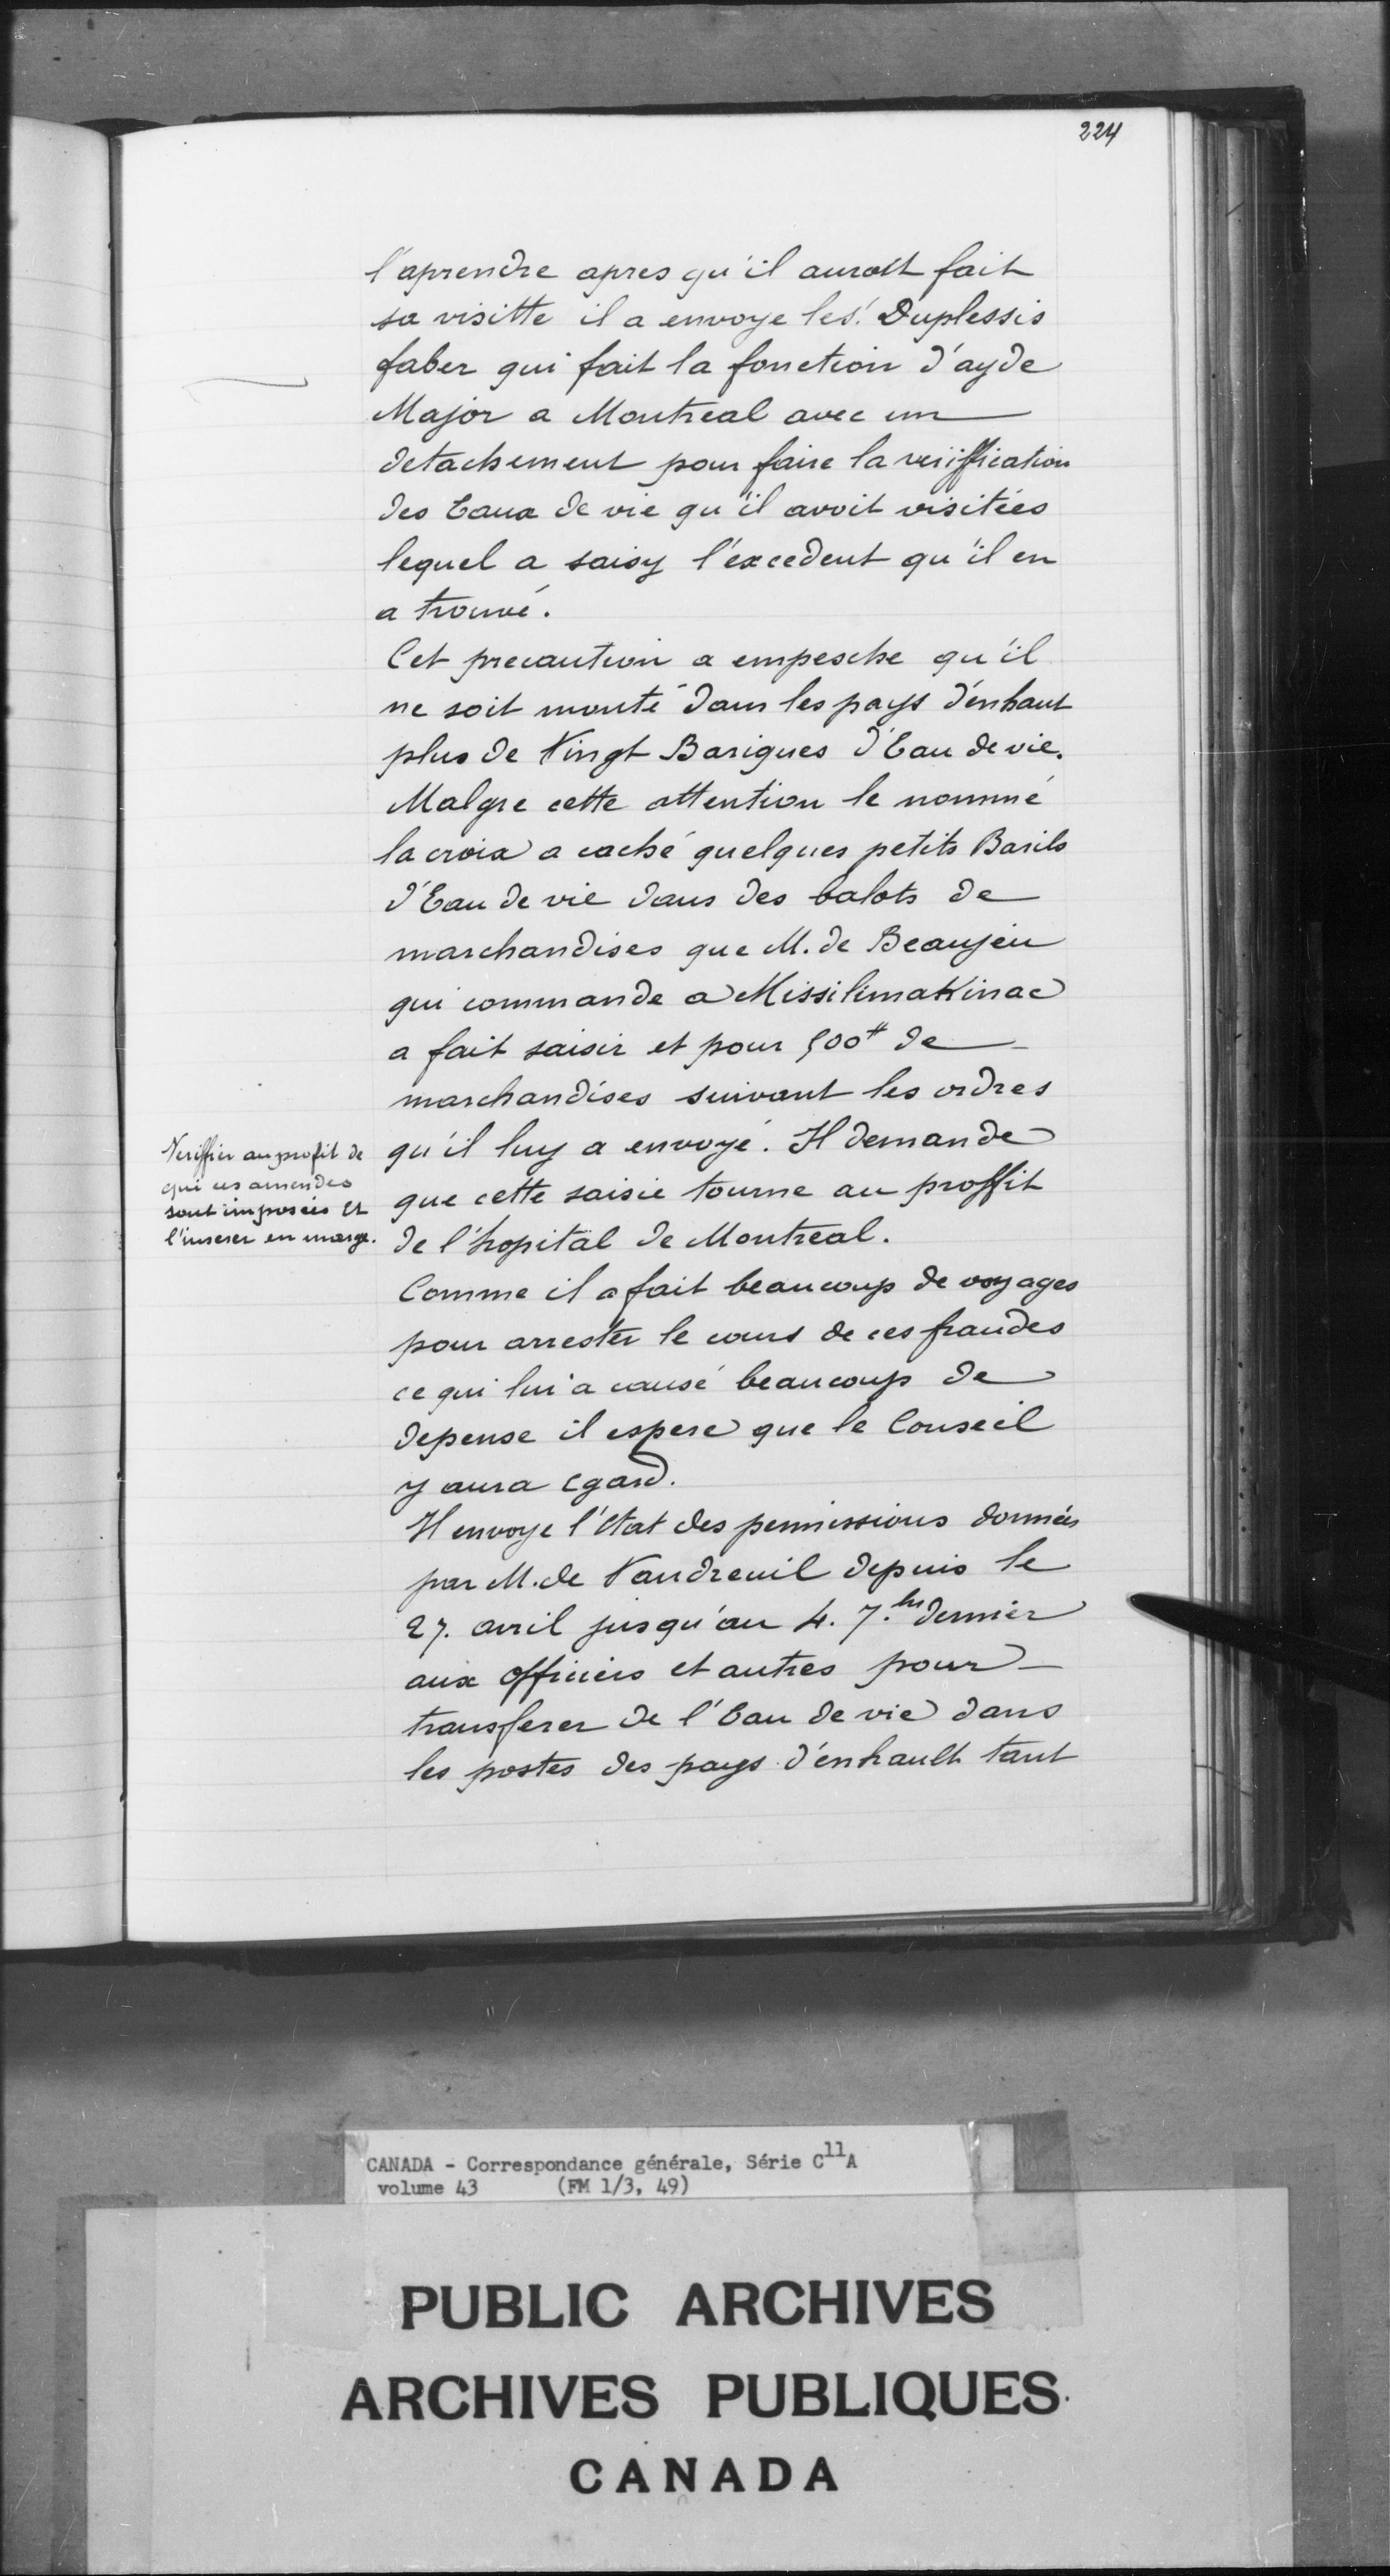 224
l'aprendre apres qu'il auroit fait
sa visitte il a envoye le s.' Duplessis
faber qui fait la fonction d'ayde
Major a Montreal avec un
detachement pour faire la veriffication
des Eaux de vie qu'il avoit visitées
lequel a saisy l'excedent qu'il en
a trouvé.
Cet precaution a empesche qu'il
ne soit monté dans les pays d'enhaut
plus de Vingt Bariques d'Eau de vie.
Malgre cette attention le nommé
la croix a caché quelques petits Barils
d'Eau de vie dans des balots de
marchandises que M. de Beaujeu
qui commande a Missilimakinac
a fait saisir et pour 500# de
marchandises suivant les ordres
qu'il luy a envoyé. Il demande
que cette saisie tourne au proffit
de l'hopital de Montreal.
Veriffier au profit de
qui ces amendes
sont imposées et
l'inserer en marge.
Comme il a fait beaucoup de voyages
pour arrester le cours de ces fraudes
ce qui lui a causé beaucoup de
depense il espere que le Conseil
y aura egard.
Il envoye l'Etat des permissions données
par M. de Vaudreuil depuis le
27. avril jusqu'au 4. 7.bre dernier
aux officiers et autres pour
transferer de l'Eau de vie dans
les postes des pays d'enhault tant
CANADA - Correspondance générale, Série C11A
volume 43 (FM 1/3, 49)
PUBLIC ARCHIVES
ARCHIVES PUBLIQUES
CANADA